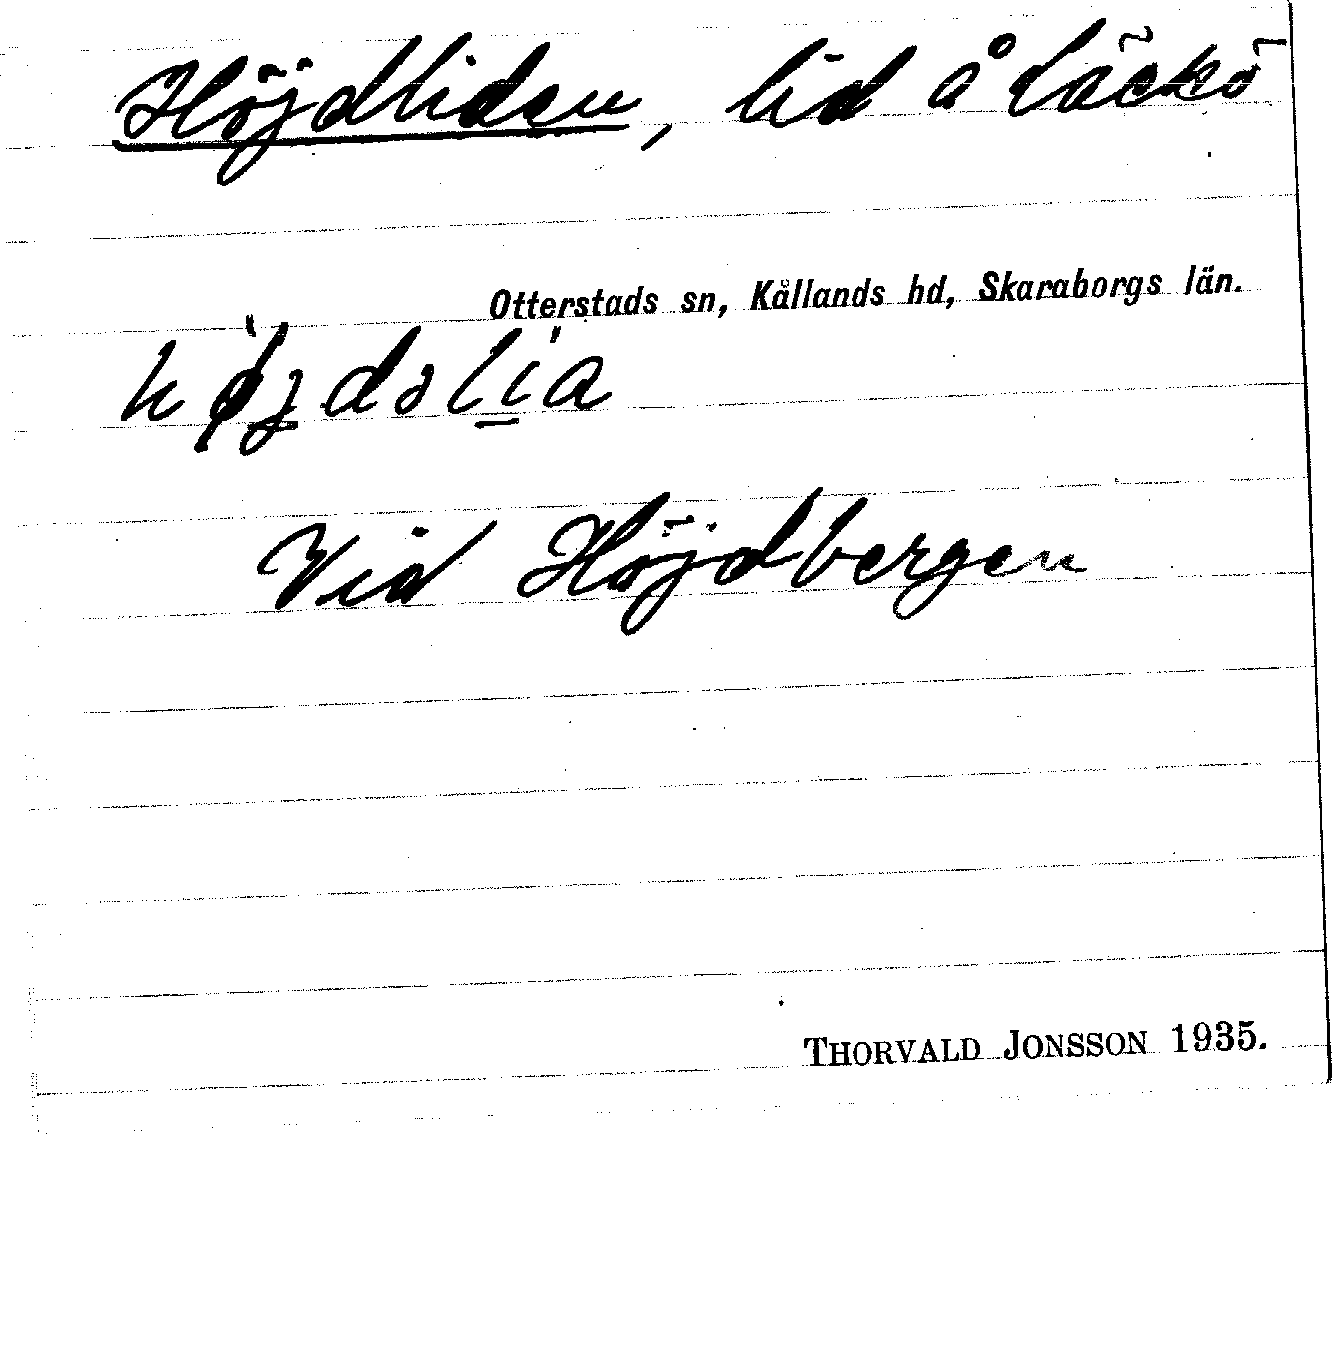 Höjdliden, lid å Läckö
Otterstads sn, Kållands hd, Skaraborgs län.
Vid Höjdbergen
THORVALD JONSSON 1935.